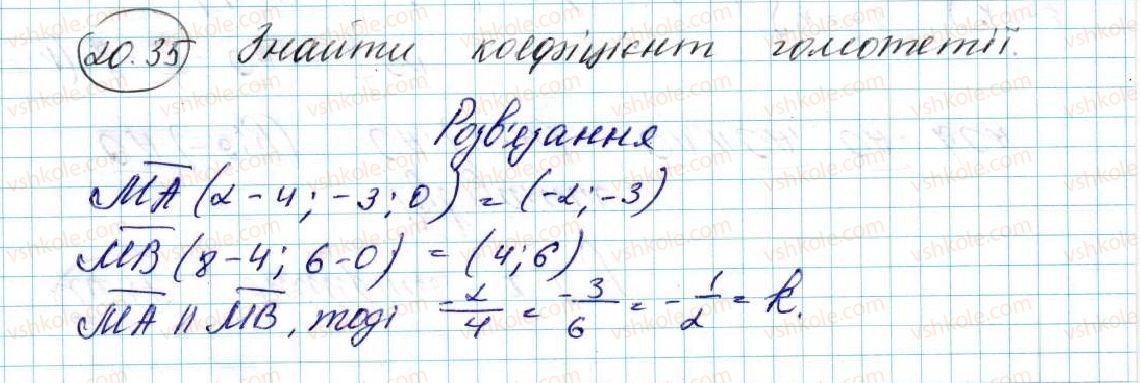 20.35 Знайти коефіцієнт гомотетії.
Розв'язання
MA (2-4; -3; 0) = (-2; -3)
MB (8-4; 6-0) = (4; 6)
MA || MB, тоді -2/4 = -3/6 = -1/2 = k.